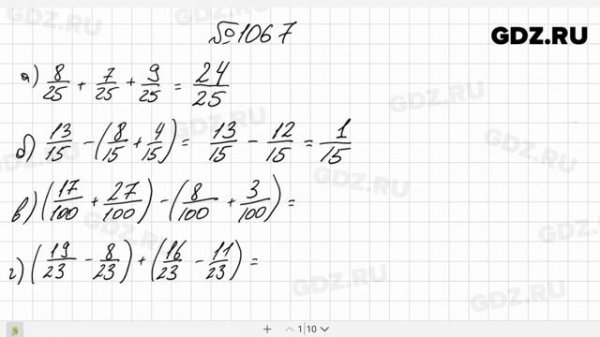 №1067
GDZ.RU
а) 8/25 + 7/25 + 9/25 = 24/25
б) 13/15 - (8/15 + 4/15) = 13/15 - 12/15 = 1/15
в) (17/100 + 27/100) - (8/100 + 3/100) =
г) (19/23 - 8/23) + (16/23 - 11/23) =
GDZ.RU
GDZ.RU
GDZ.RU
GDZ.RU
GDZ.RU
1|10